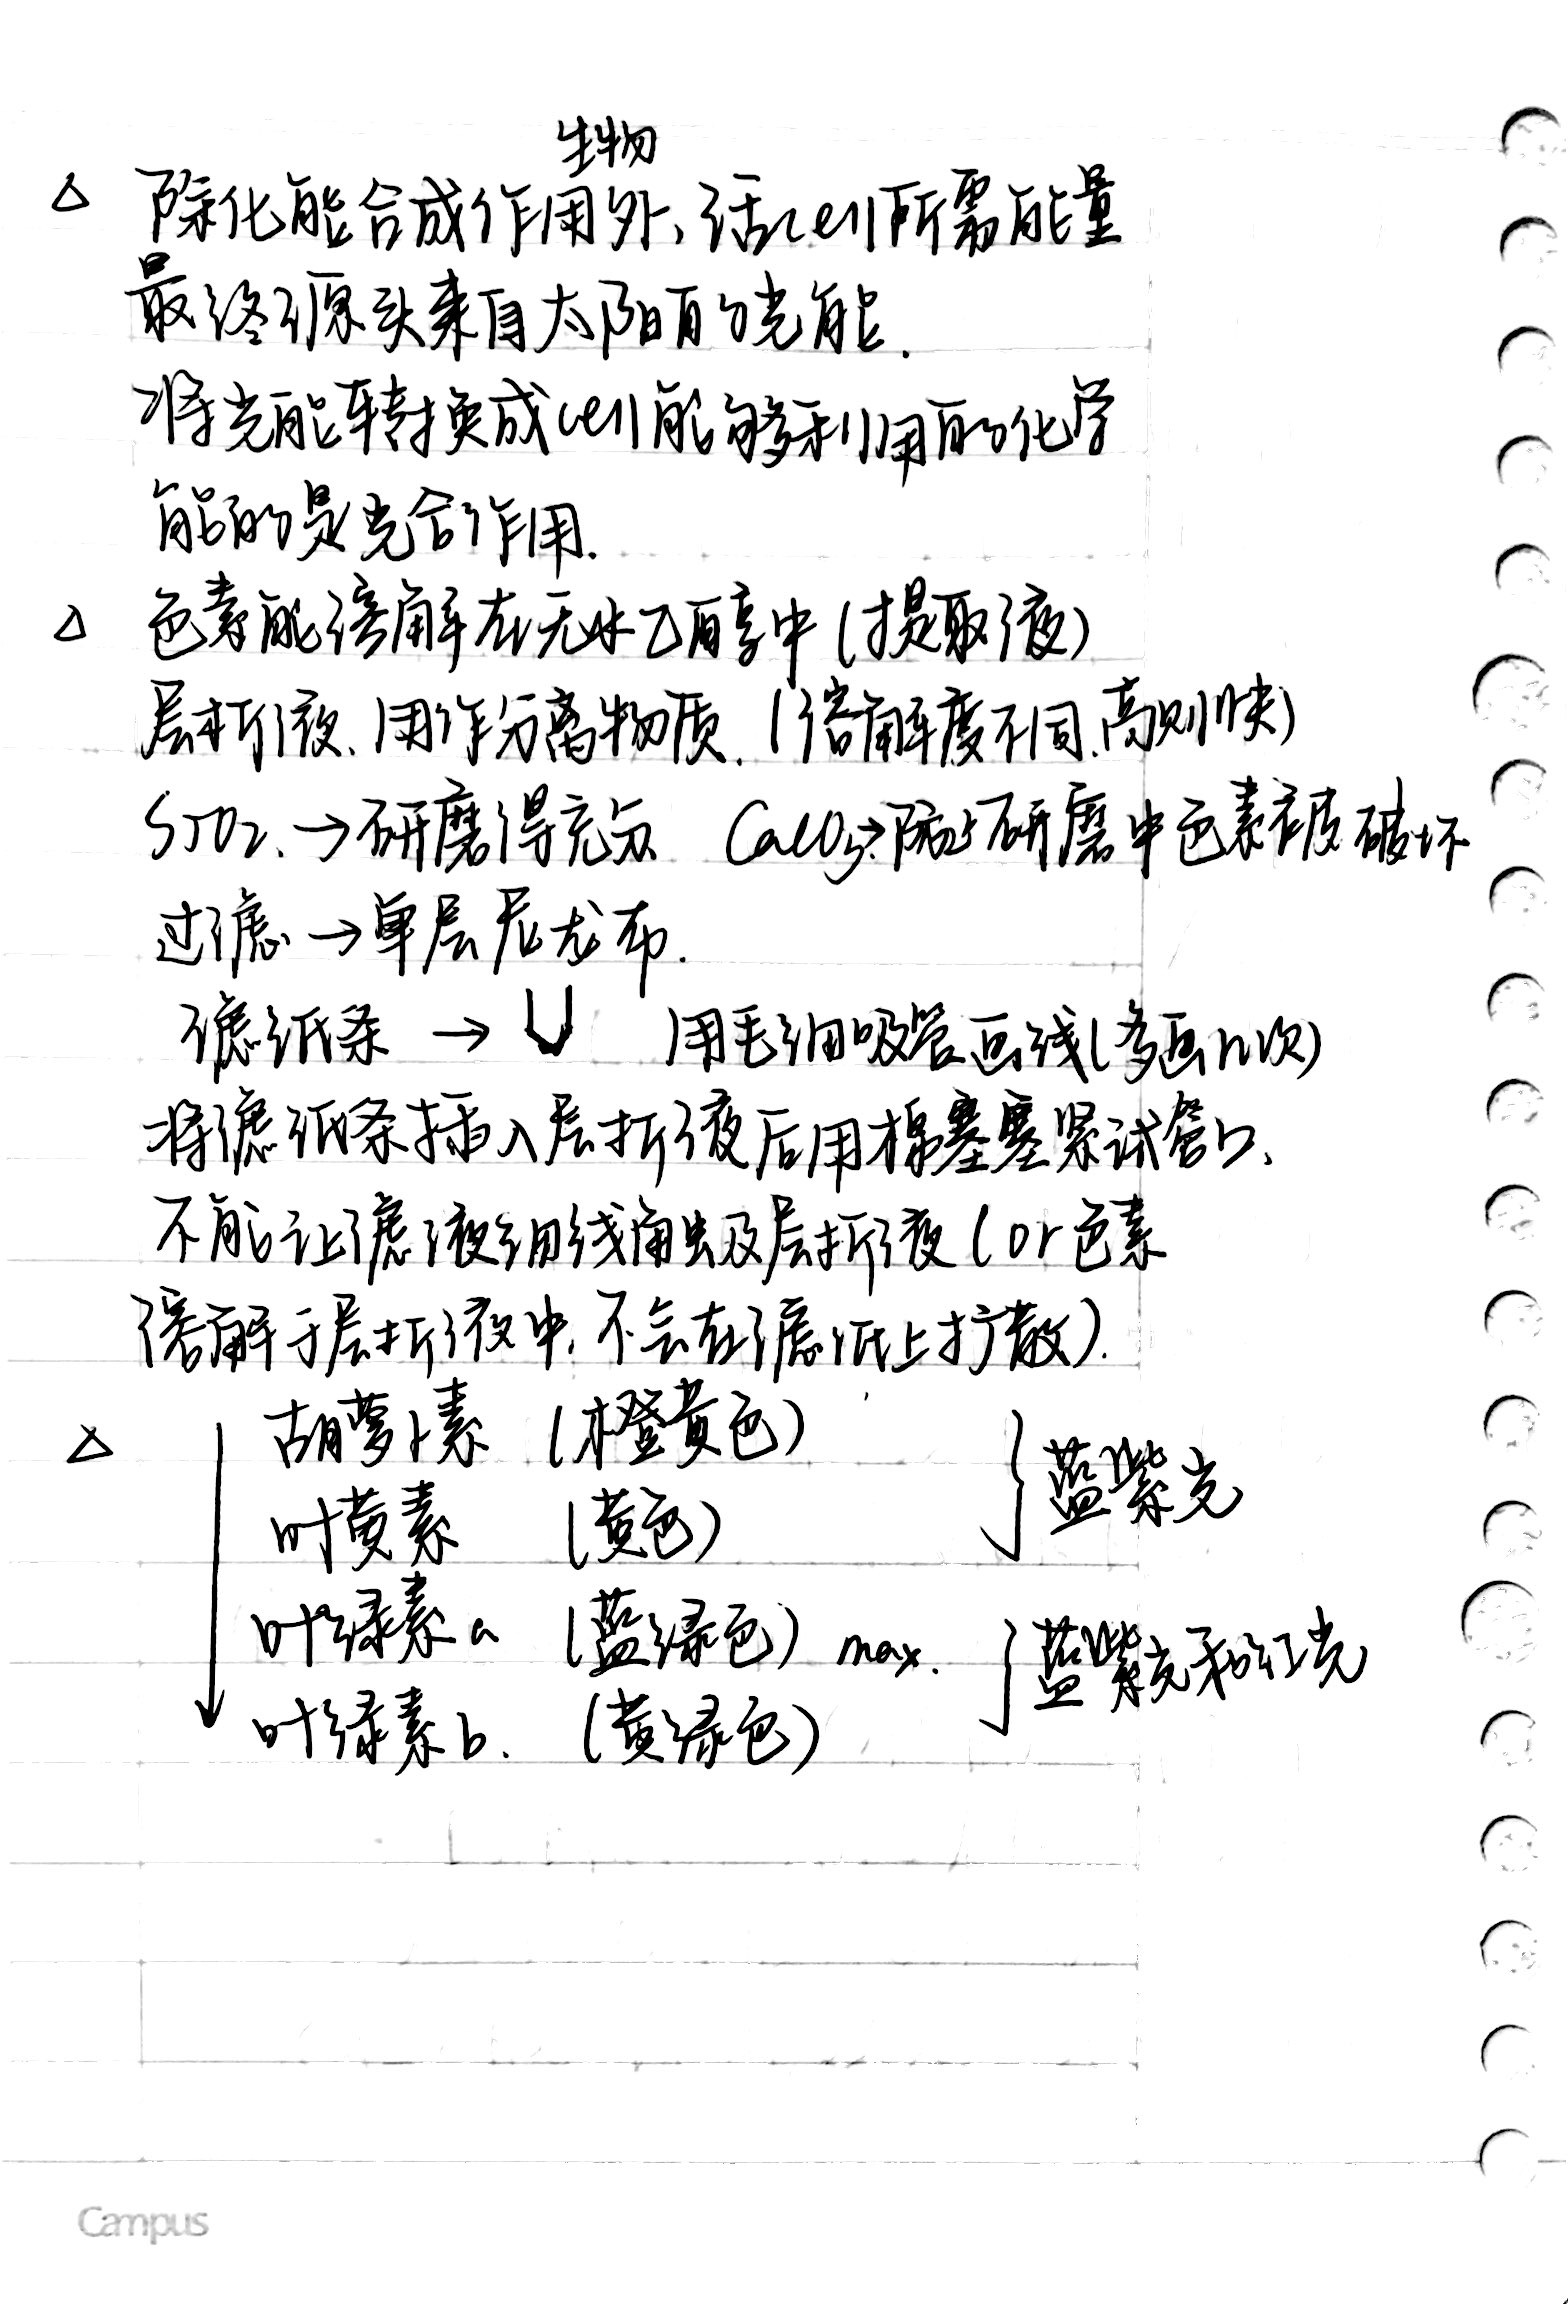 生物
△ 除化能合成作用外、活cell所需能量
最终源头来自太阳的光能.
将光能转换成cell能够利用的化学
能的是光合作用.
△ 色素能溶解在无水乙醇中(提取液)
层析液、用作分离物质.(溶解度不同、高则快)
SiO₂.→研磨得充分 CaCO₃→防止研磨中色素被破坏
过滤→单层尼龙布.
滤纸条 → 用毛细吸管画线(多画n次)
将滤纸条插入层析液后用棉塞塞紧试管口、
不能让滤液细线触及层析液(or色素
溶解于层析液中、不会在滤纸上扩散).
△ 胡萝卜素 (橙黄色)
叶黄素 (黄色) } 蓝紫光
叶绿素a (蓝绿色) max.
叶绿素b. (黄绿色) } 蓝紫光和红光
Campus